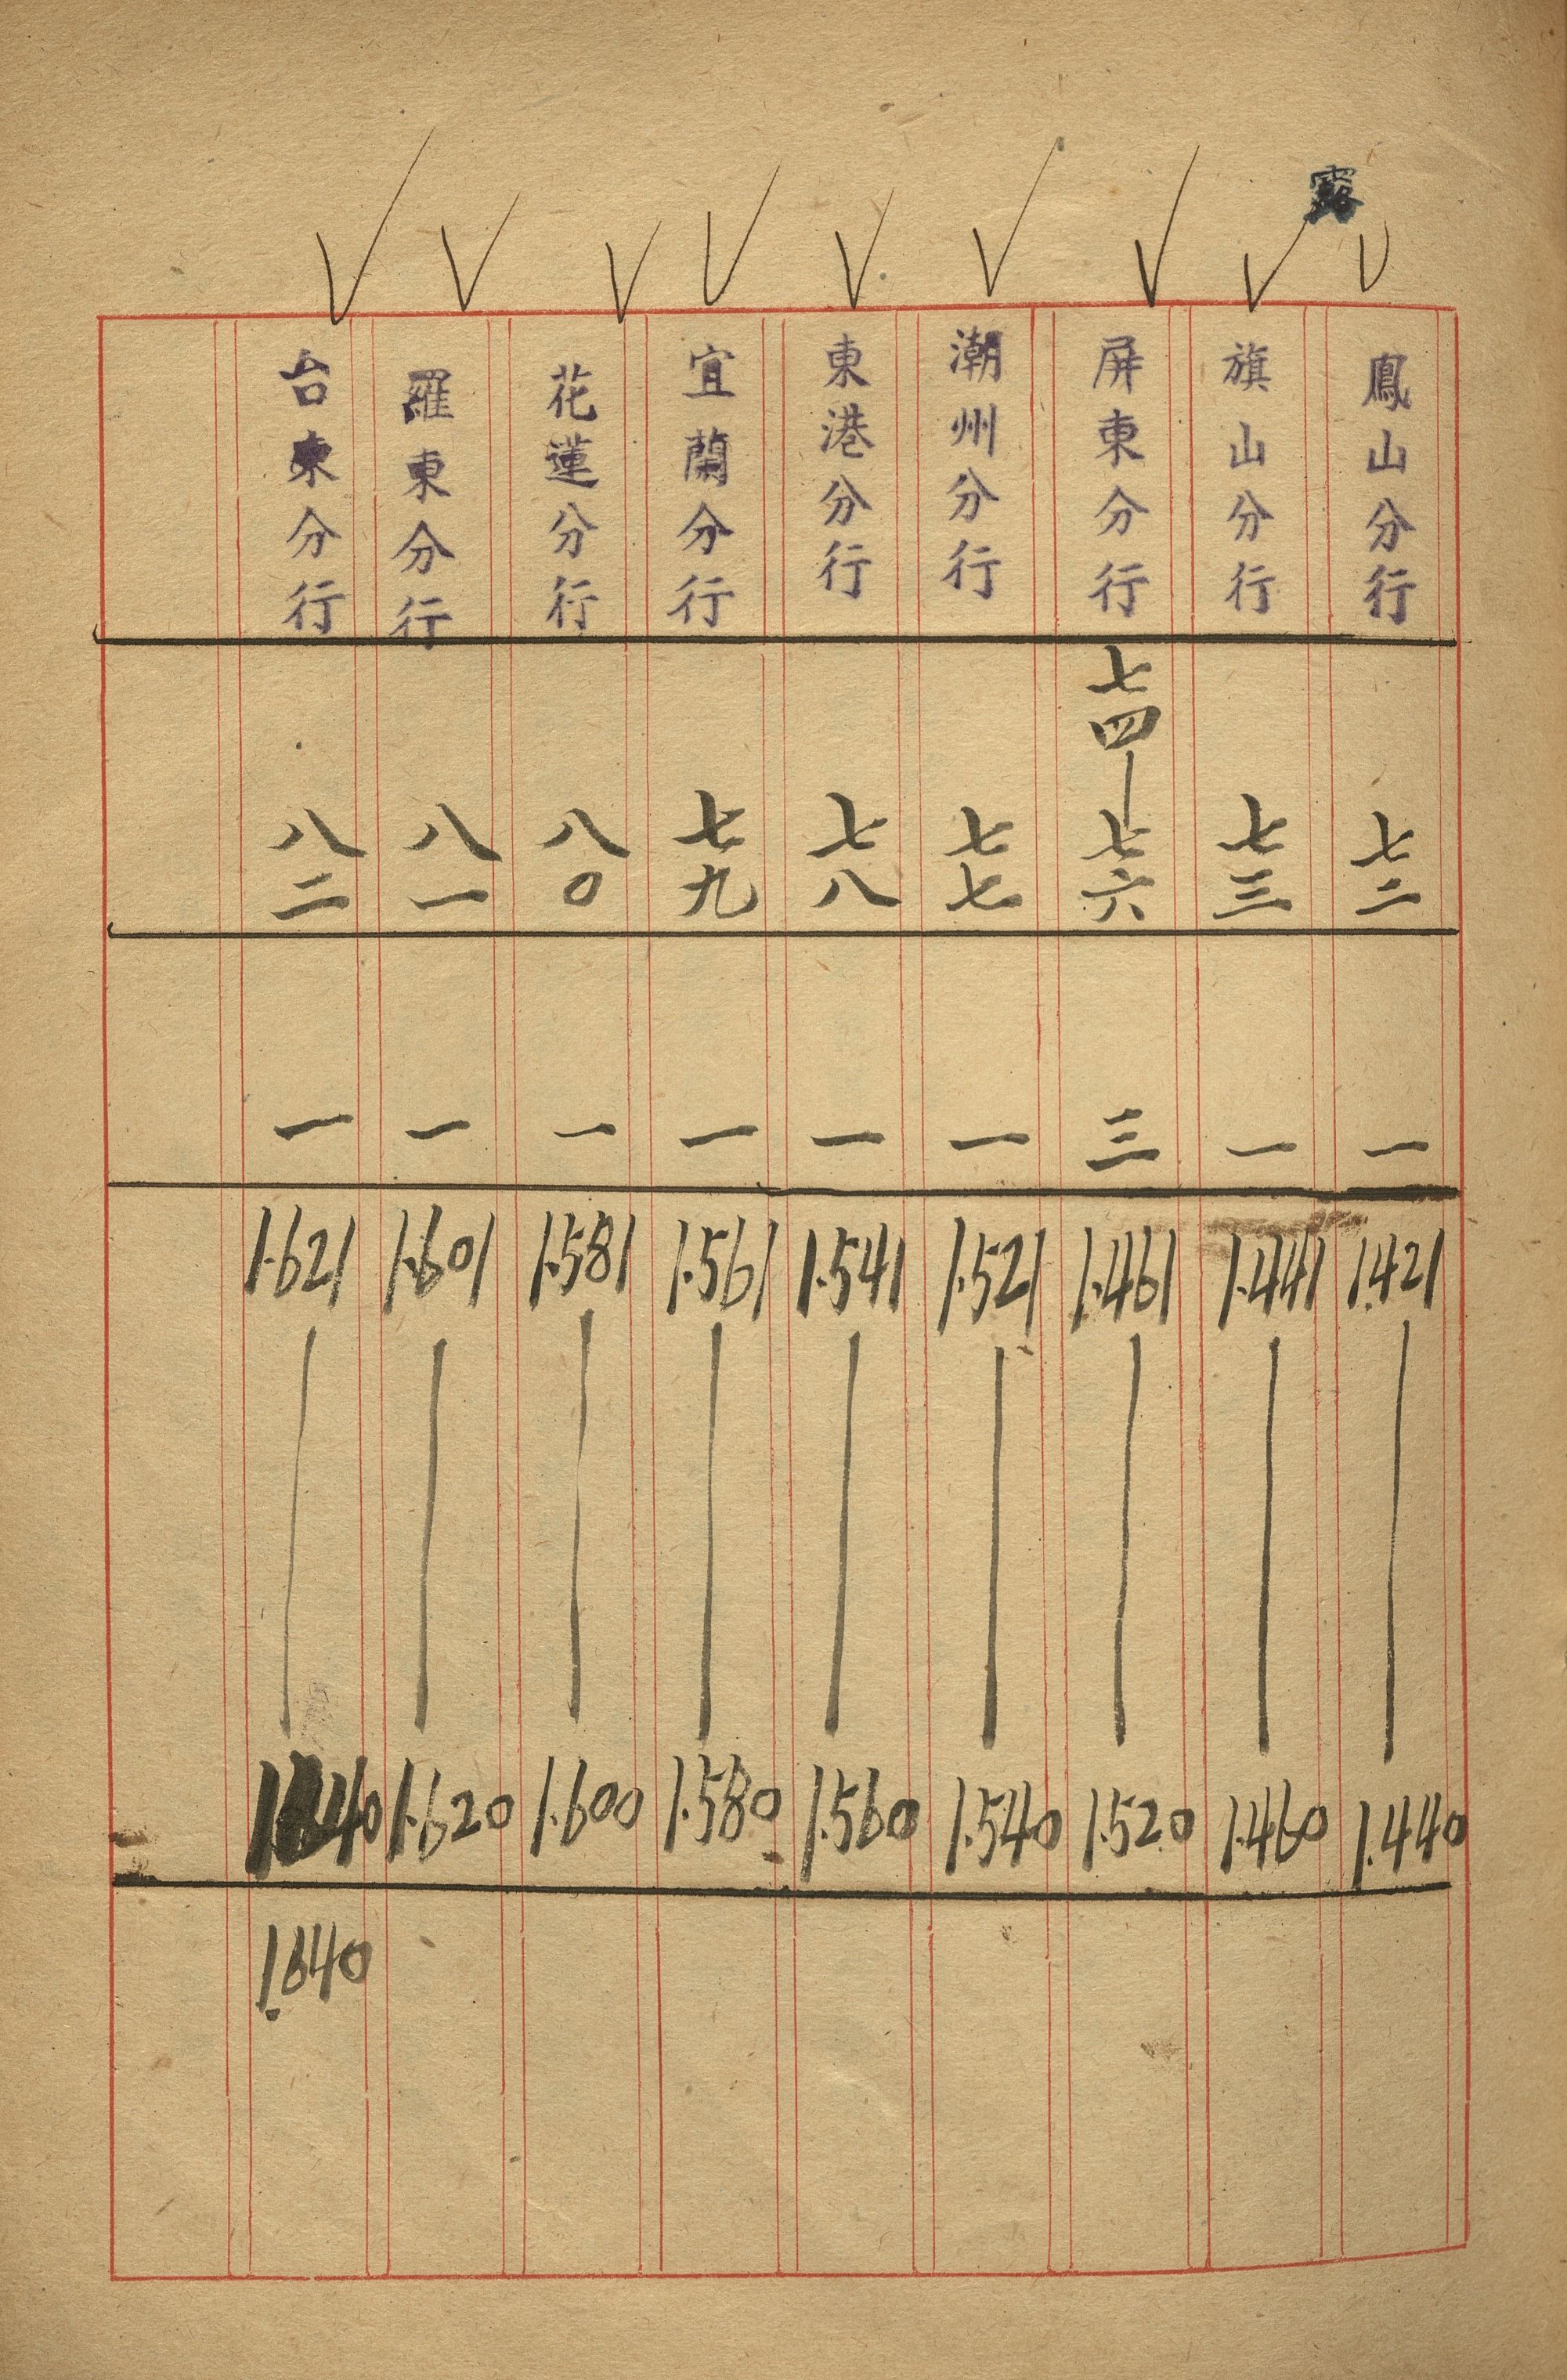 鳳山分行 七二 一 1.421 | 1.440
旗山分行 七三 一 1.441 | 1.460
屏東分行 七四—七六 三 1.461 | 1.520
潮州分行 七七 一 1.521 | 1.540
東港分行 七八 一 1.541 | 1.560
宜蘭分行 七九 一 1.561 | 1.580
花蓮分行 八〇 一 1.581 | 1.600
羅東分行 八一 一 1.601 | 1.620
台東分行 八二 一 1.621 | 1.640